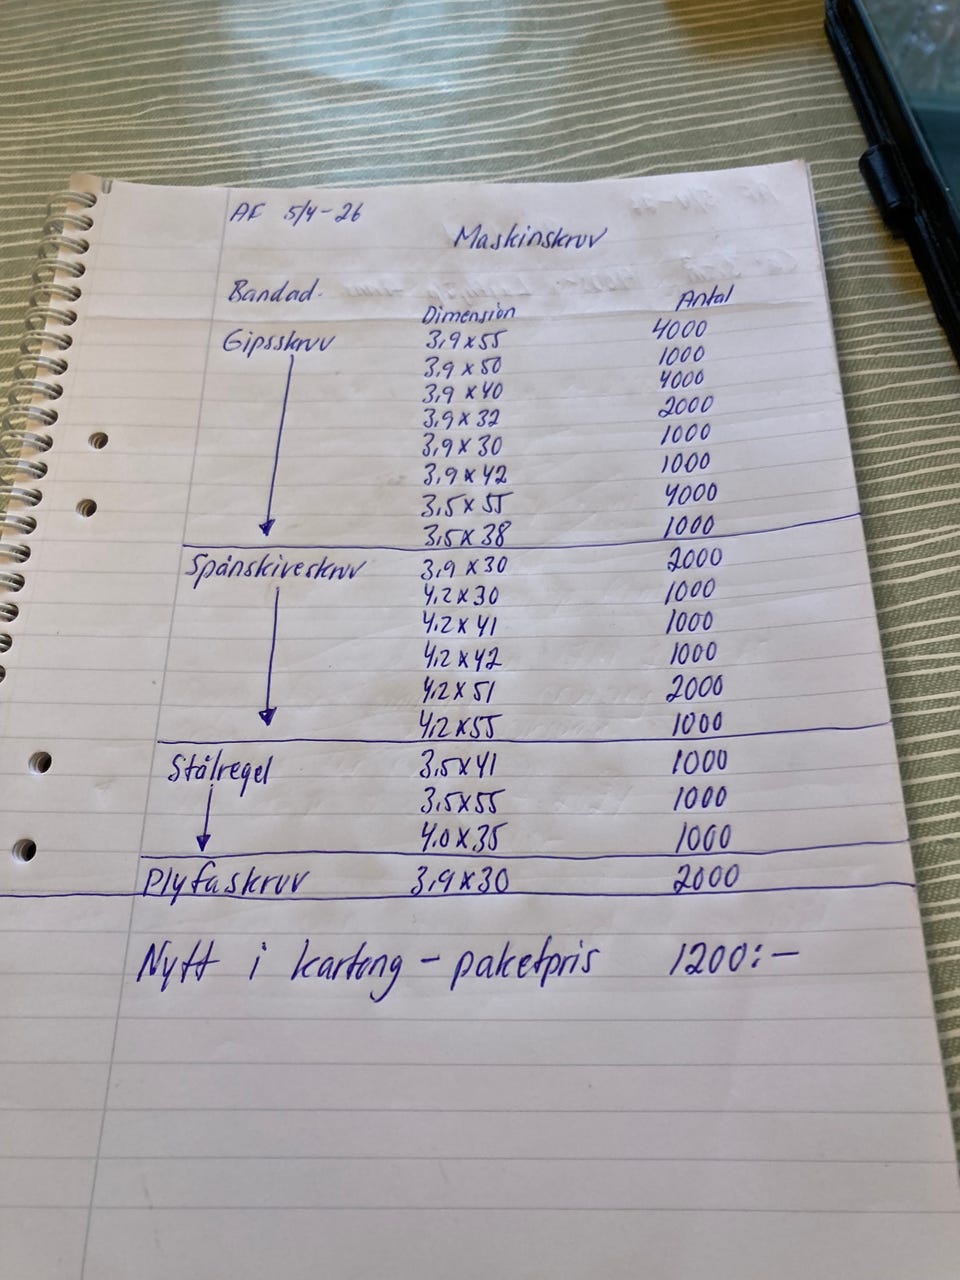 AF 5/4-26
Maskinskruv
Bandad.
Dimension Antal
Gipsskruv 3,9x55 4000
3,9x50 1000
3,9x40 4000
3,9x32 2000
3,9x30 1000
3,9x42 1000
3,5x55 4000
3,5x38 1000
Spånskiveskruv 3,9x30 2000
4,2x30 1000
4,2x41 1000
4,2x42 1000
4,2x51 2000
4,2x55 1000
Stålregel 3,5x41 1000
3,5x55 1000
4,0x35 1000
Plyfaskruv 3,9x30 2000
Nytt i kartong - paketpris 1200:-